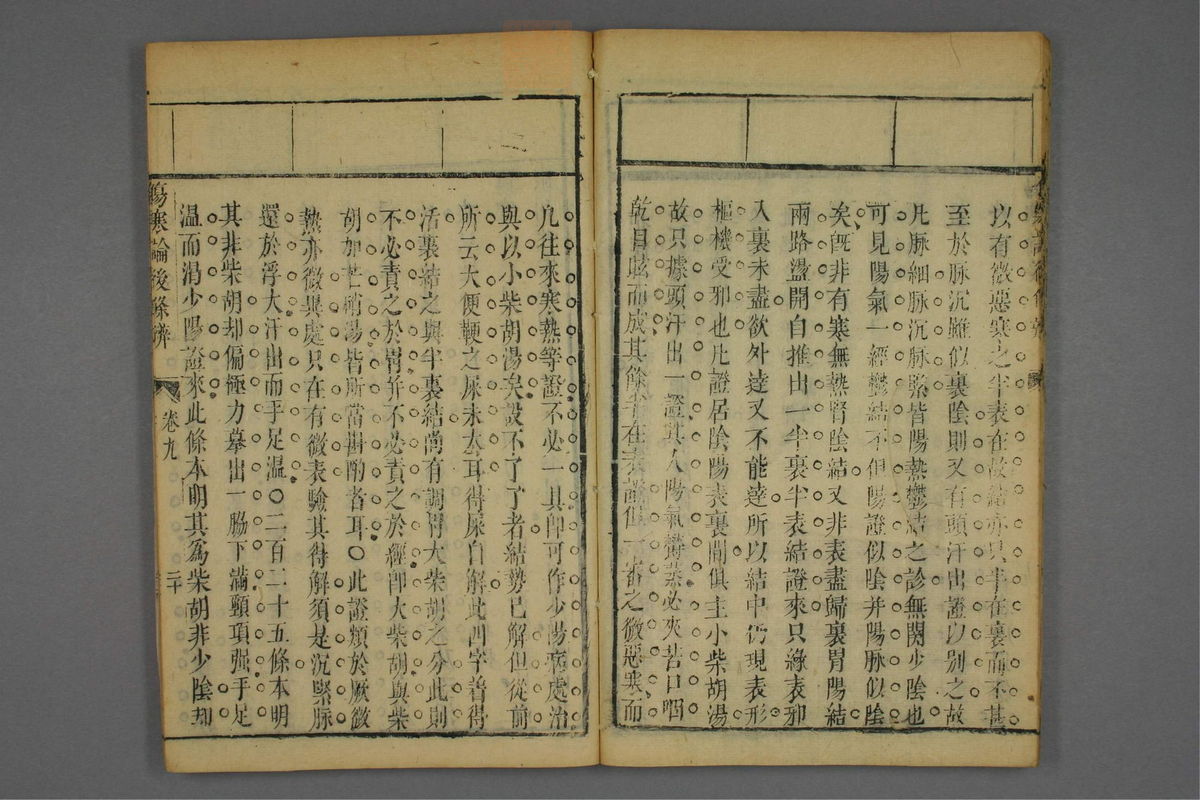 以有微惡寒之半表在故結亦只半在裏而不甚
至於脉沉雖似裏陰則又有頭汗出證以别之故
凡脉細脉沉脉緊皆陽熱鬱結之診無関少陰也
可見陽氣一經鬱結不但陽證似陰并陽脉似陰
矣旣非有寒無熱腎陰結又非表盡歸裏胃陽結
兩路盪開自推出一半裏半表結證來只緣表邪
入裏未盡欲外達又不能達所以結中仍現表形
樞機受邪也凡證居陰陽表裏間俱主小柴胡湯
故只據頭汗出一證其人陽氣鬱蒸必夾苦口咽
乾目眩而成其餘半在表證但一審之微惡寒而
凡往來寒熱等證不必一具即可作少陽病處治
與以小柴胡湯矣設不了了者結勢已解但從前
所云大便鞕之屎未去耳得屎自解此四字着得
活裏結之與半裏結尚有調胃大柴胡之分此則
不必責之於胃并不必責之於經即大柴胡與柴
胡加芒硝湯皆所當斟酌者耳〇此證類於厥微
熱亦微異處只在有微表驗其得解須是沉緊脉
還於浮大汗出而手足温〇二百二十五條本明
其非柴胡却偏極力摹出一脇下滿頸項强手足
温而渴少陽證來此條本明其為柴胡非少陰却
傷寒論後條辨
卷九
二十